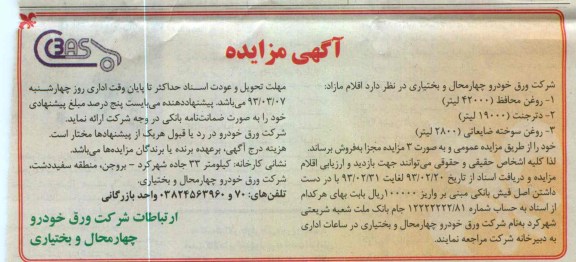 CEAS
آگهی مزایده
شرکت ورق خودرو چهارمحال و بختیاری در نظر دارد اقلام مازاد:
۱- روغن محافظ (۴۲۰۰۰ لیتر)
۲- دترجنت (۱۹۰۰۰ لیتر)
۳- روغن سوخته ضایعاتی (۲۸۰۰ لیتر)
خود را از طریق مزایده عمومی و به صورت ۳ مزایده مجزا به‌فروش برساند.
لذا کلیه اشخاص حقیقی و حقوقی می‌توانند جهت بازدید و ارزیابی اقلام
مزایده و دریافت اسناد از تاریخ ۹۳/۰۲/۲۰ لغایت ۹۳/۰۲/۳۱ با در دست
داشتن اصل فیش بانکی مبنی بر واریز ۱۰۰۰۰۰ریال بابت بهای هرکدام
از اسناد به حساب شماره ۱۲۲۲۲۲۲۲/۸۱ جام بانک ملت شعبه شریعتی
شهرکرد به‌نام شرکت ورق خودرو چهارمحال و بختیاری در ساعات اداری
به دبیرخانه شرکت مراجعه نمایند.
مهلت تحویل و عودت اسناد حداکثر تا پایان وقت اداری روز چهارشنبه
۹۳/۰۳/۰۷ می‌باشد. پیشنهاددهنده می‌بایست پنج درصد مبلغ پیشنهادی
خود را به صورت ضمانت‌نامه بانکی در وجه شرکت ارائه نماید.
شرکت ورق خودرو در رد یا قبول هریک از پیشنهادها مختار است.
هزینه درج آگهی، برعهده برنده یا برندگان مزایده‌ها می‌باشد.
نشانی کارخانه: کیلومتر ۳۳ جاده شهرکرد - بروجن، منطقه سفیددشت،
شرکت ورق خودرو چهارمحال و بختیاری.
تلفن‌های: ۷۰ و ۰۳۸۲۴۵۶۳۹۶۰ واحد بازرگانی
ارتباطات شرکت ورق خودرو
چهارمحال و بختیاری